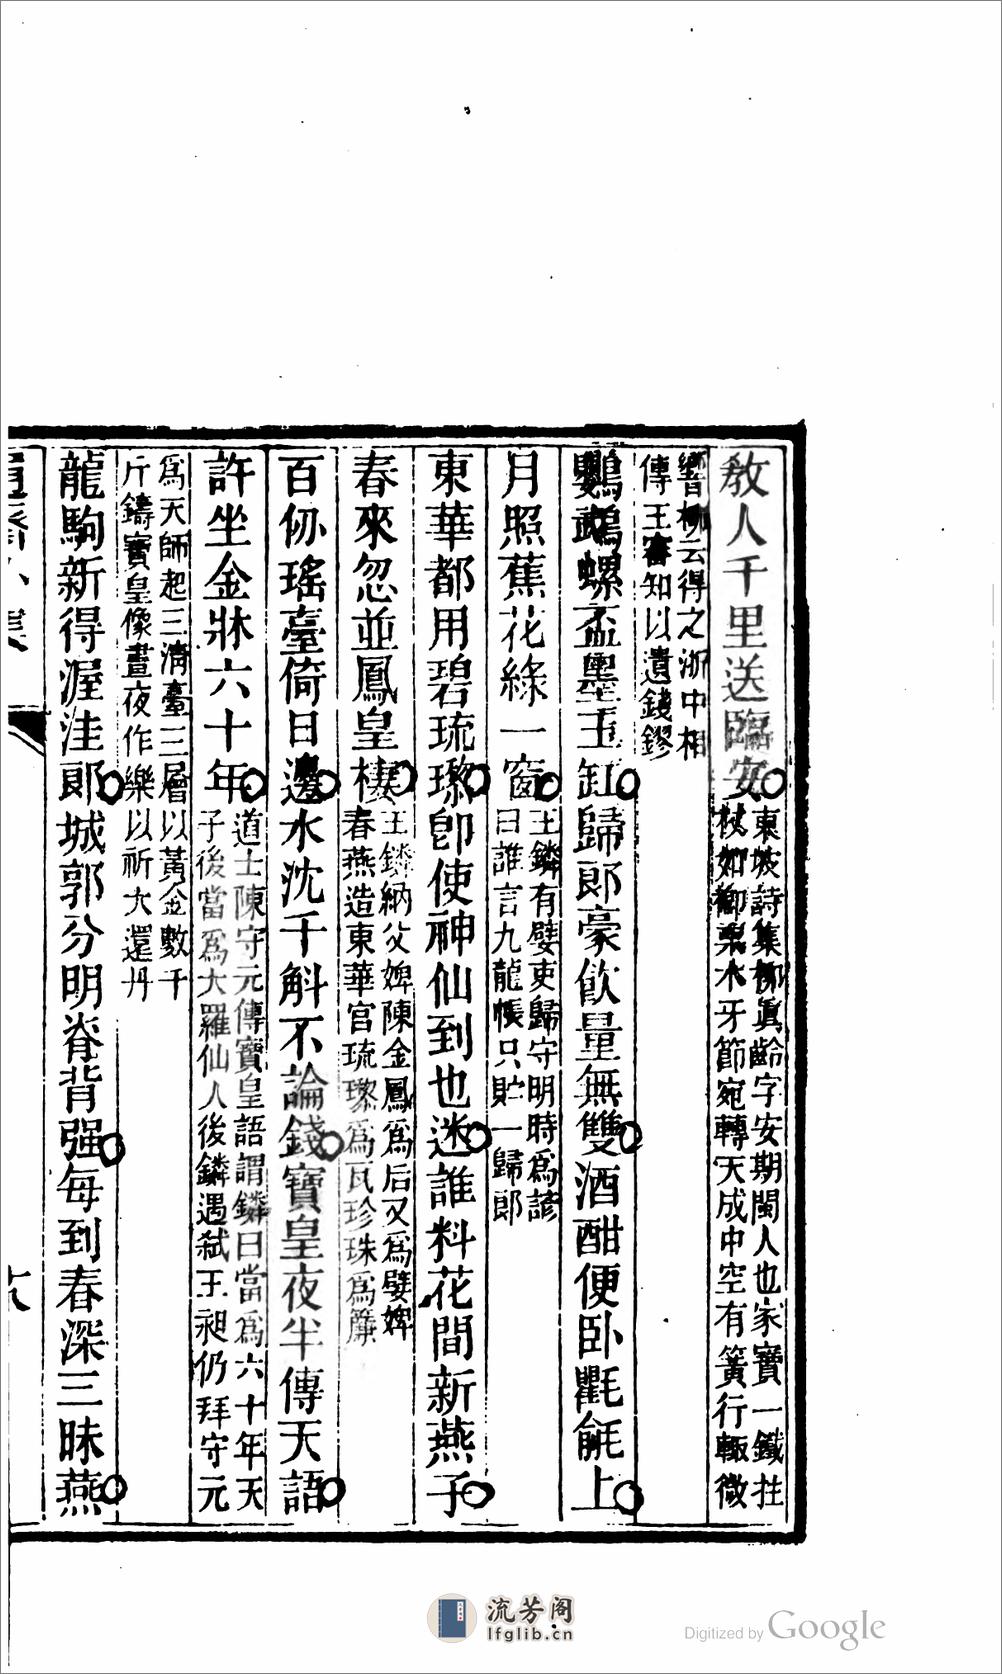 教人千里送臨安
東坡詩集柳真齡字安期閩人也家寶一鐵拄
杖如楖栗木牙節宛轉天成中空有簧行輒微
響柳云得之浙中相
傳王審知以遺錢鏐
鸚鵡螺盃墨玉缸歸郎豪飲量無雙酒酣便臥氍毹上
月照蕉花綠一窗
王鏻有嬖吏歸守明時為諺
曰誰言九龍帳只貯一歸郎
東華都用碧琉瓈卽使神仙到也迷誰料花間新燕子
春來忽並鳳皇棲
王鏻納父婢陳金鳳為后又為嬖婢
春燕造東華宮琉瓈為瓦珍珠為簾
百仞瑤臺倚日邊水沈千斛不論錢寶皇夜半傳天語
許坐金牀六十年
道士陳守元傳寶皇語謂鏻曰當為六十年天
子後當為大羅仙人後鏻遇弒王昶仍拜守元
為天師起三清臺三層以黃金數千
斤鑄寶皇像晝夜作樂以祈大還丹
龍駒新得渥洼郎城郭分明脊背强每到春深三昧燕
流芳阁
lfglib.cn
Digitized by Google